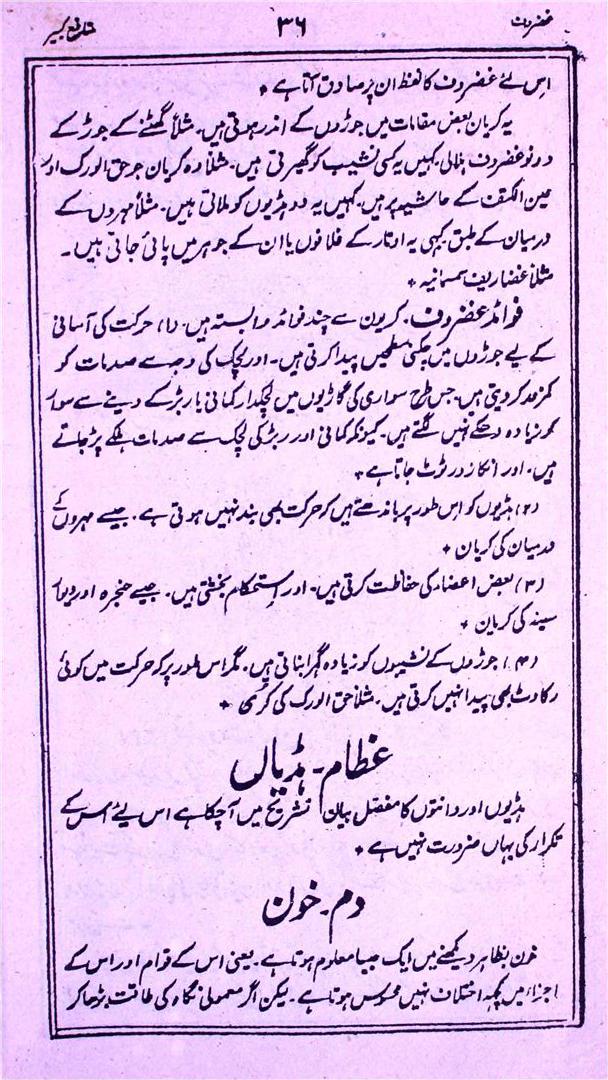 غضروف ۳۶ تشریح کبیر
اس لئے غضروف کا لفظ ان پر صادق آتا ہے *
یہ کریاں بعض مقامات میں جوڑوں کے اندر ہوتی ہیں۔ مثلاً گھٹنے کے جوڑ کے
دونو غضروف ہلالی کہیں یہ کسی نشیب کو گھیرتی ہیں۔ مثلاً وہ کریاں جو حق الورک اور
عین الکتف کے حاشیہ پر ہیں۔ کہیں یہ دو ہڈیوں کو ملاتی ہیں۔ مثلاً مہروں کے
درمیان کے طبق کہی یہ اوتار کے غلافوں یا ان کے جوہر میں پائی جاتی ہیں۔
مثلاً غضاریف سمسمانیہ *
فوائد غضروف۔ کریوں سے چند فوائد وابستہ ہیں۔ (۱) حرکت کی آسانی
کے لیے جوڑوں میں چکنی سطحیں پیدا کرتی ہیں۔ اور لچک کی وجہ سے صدمات کو
کمزور کر دیتی ہیں۔ جس طرح سواری کی گاڑیوں میں لچکدار کمانی یا ربڑ کے دینے سے سوار
کو زیادہ دھکے نہیں لگتے ہیں۔ کیونکہ کمانی اور ربڑ کی لچک سے صدمات ہلکے پڑ جاتے
ہیں۔ اور انکا زور ٹوٹ جاتا ہے *
(۲) ہڈیوں کو اس طور پر باندھتے ہیں کہ حرکت بھی بند نہیں ہوتی ہے۔ جیسے مہروں کے
درمیان کی کریاں *
(۳) بعض اعضاء کی حفاظت کرتی ہیں۔ اور استحکام بخشتی ہیں۔ جیسے حنجرہ اور دیوار
سینہ کی کریاں *
(۴) جوڑوں کے نشیبوں کو زیادہ گہرا بناتی ہیں۔ مگر اس طور پر کہ حرکت میں کوئی
رکاوٹ بھی پیدا نہیں کرتی ہیں۔ مثلاً حق الورک کی کری *
عظام۔ ہڈیاں
ہڈیوں اور دانتوں کا مفصل بیان تشریح میں آ چکا ہے اس لیے اس کے
تکرار کی یہاں ضرورت نہیں ہے *
دم۔ خون
خون بظاہر دیکھنے میں ایک جیسا معلوم ہوتا ہے۔ یعنی اس کے قوام اور اس کے
اجزاء میں کچھ اختلاف نہیں محسوس ہوتا ہے۔ لیکن اگر معمولی نگاہ کی طاقت بڑھا کر